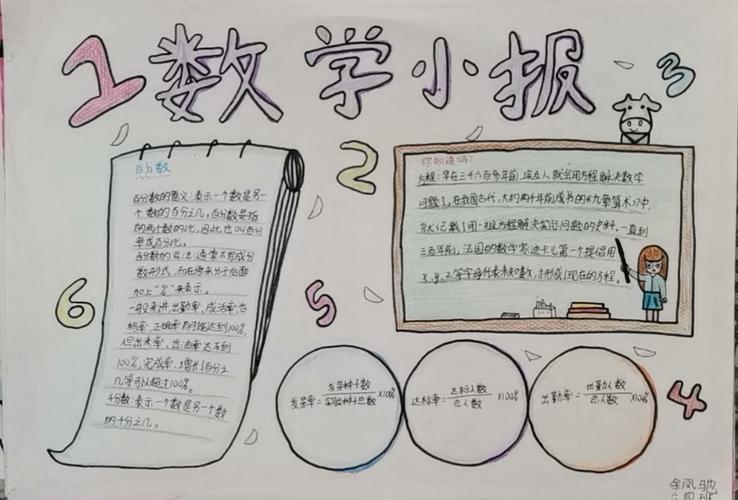 数学小报
1
2
3
4
5
6
百分数
百分数的意义:表示一个数是另一
个数的百分之几。百分数是指
的两个数的比,因此也叫百分
率或百分比。
百分数的写法:通常不写成分
数形式,而在原来分子后面
加上“%”来表示。
一般来讲,出勤率、成活率、合
格率、正确率有可能达到100%,
但出米率、出油率达不到
100%,完成率、增长了百分之
几等可以超过100%。
千分数:表示一个数是另一个数
的千分之几。
你知道吗?
方程:早在三千六百多年前,埃及人就会用方程解决数学
问题了。在我国古代,大约两千年前成书的《九章算术》中,
就记载了用一组方程解决实际问题的史料。一直到
三百年前,法国的数学家迪卡儿第一个提倡用
x、y、z等字母代表未知数,才形成了现在的方程。
发芽率=发芽种子数/实验种子总数×100%
达标率=达标人数/总人数×100%
出勤率=出勤人数/总人数×100%